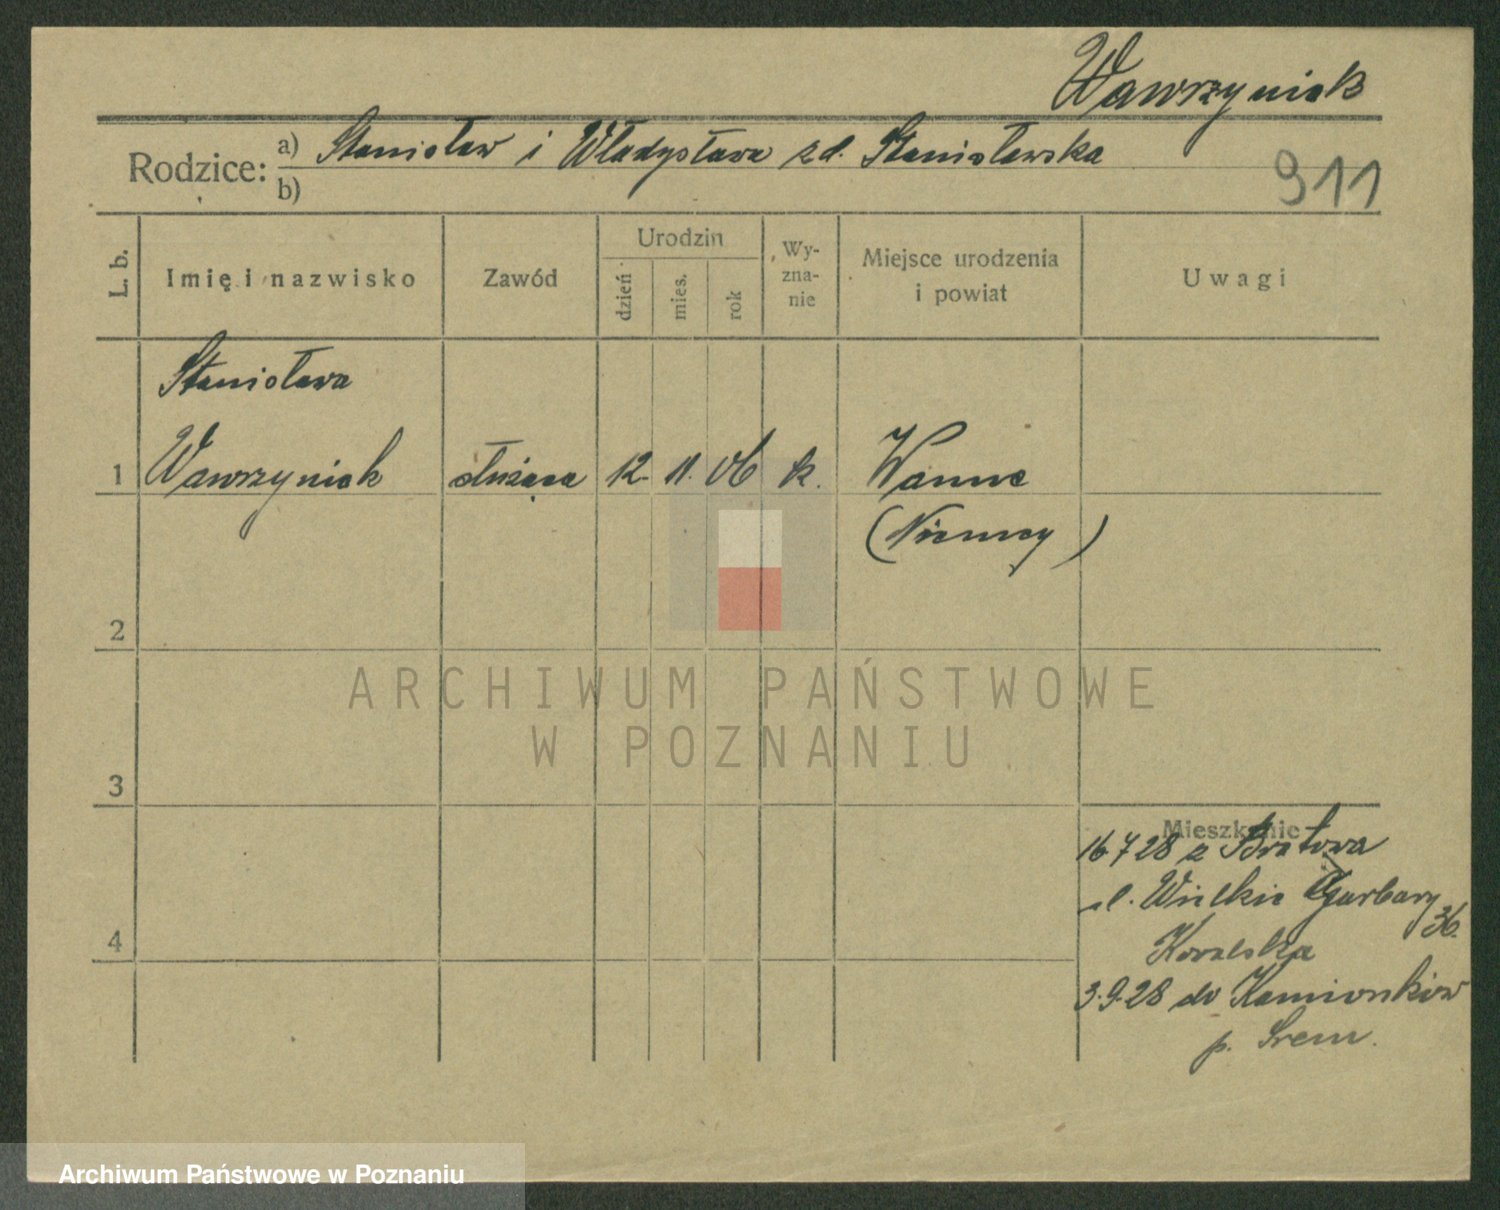 Wawrzyniak
Rodzice: a) Stanisław i Władysława zd. Stanisławska
b)
911
L. b.
Imię i nazwisko
Zawód
Urodzin
dzień
mies.
rok
Wy-
zna-
nie
Miejsce urodzenia
i powiat
Uwagi
Stanisława
1 Wawrzyniak służąca 12. 11. 06 k. Wanne
(Niemcy)
2
ARCHIWUM PAŃSTWOWE
W POZNANIU
3
Mieszkanie
16 7 28 z Bratowa
ul. Wielkie Garbary
36.
Kowalska
4
3.9.28 do Kamionków
p. Śrem.
Archiwum Państwowe w Poznaniu